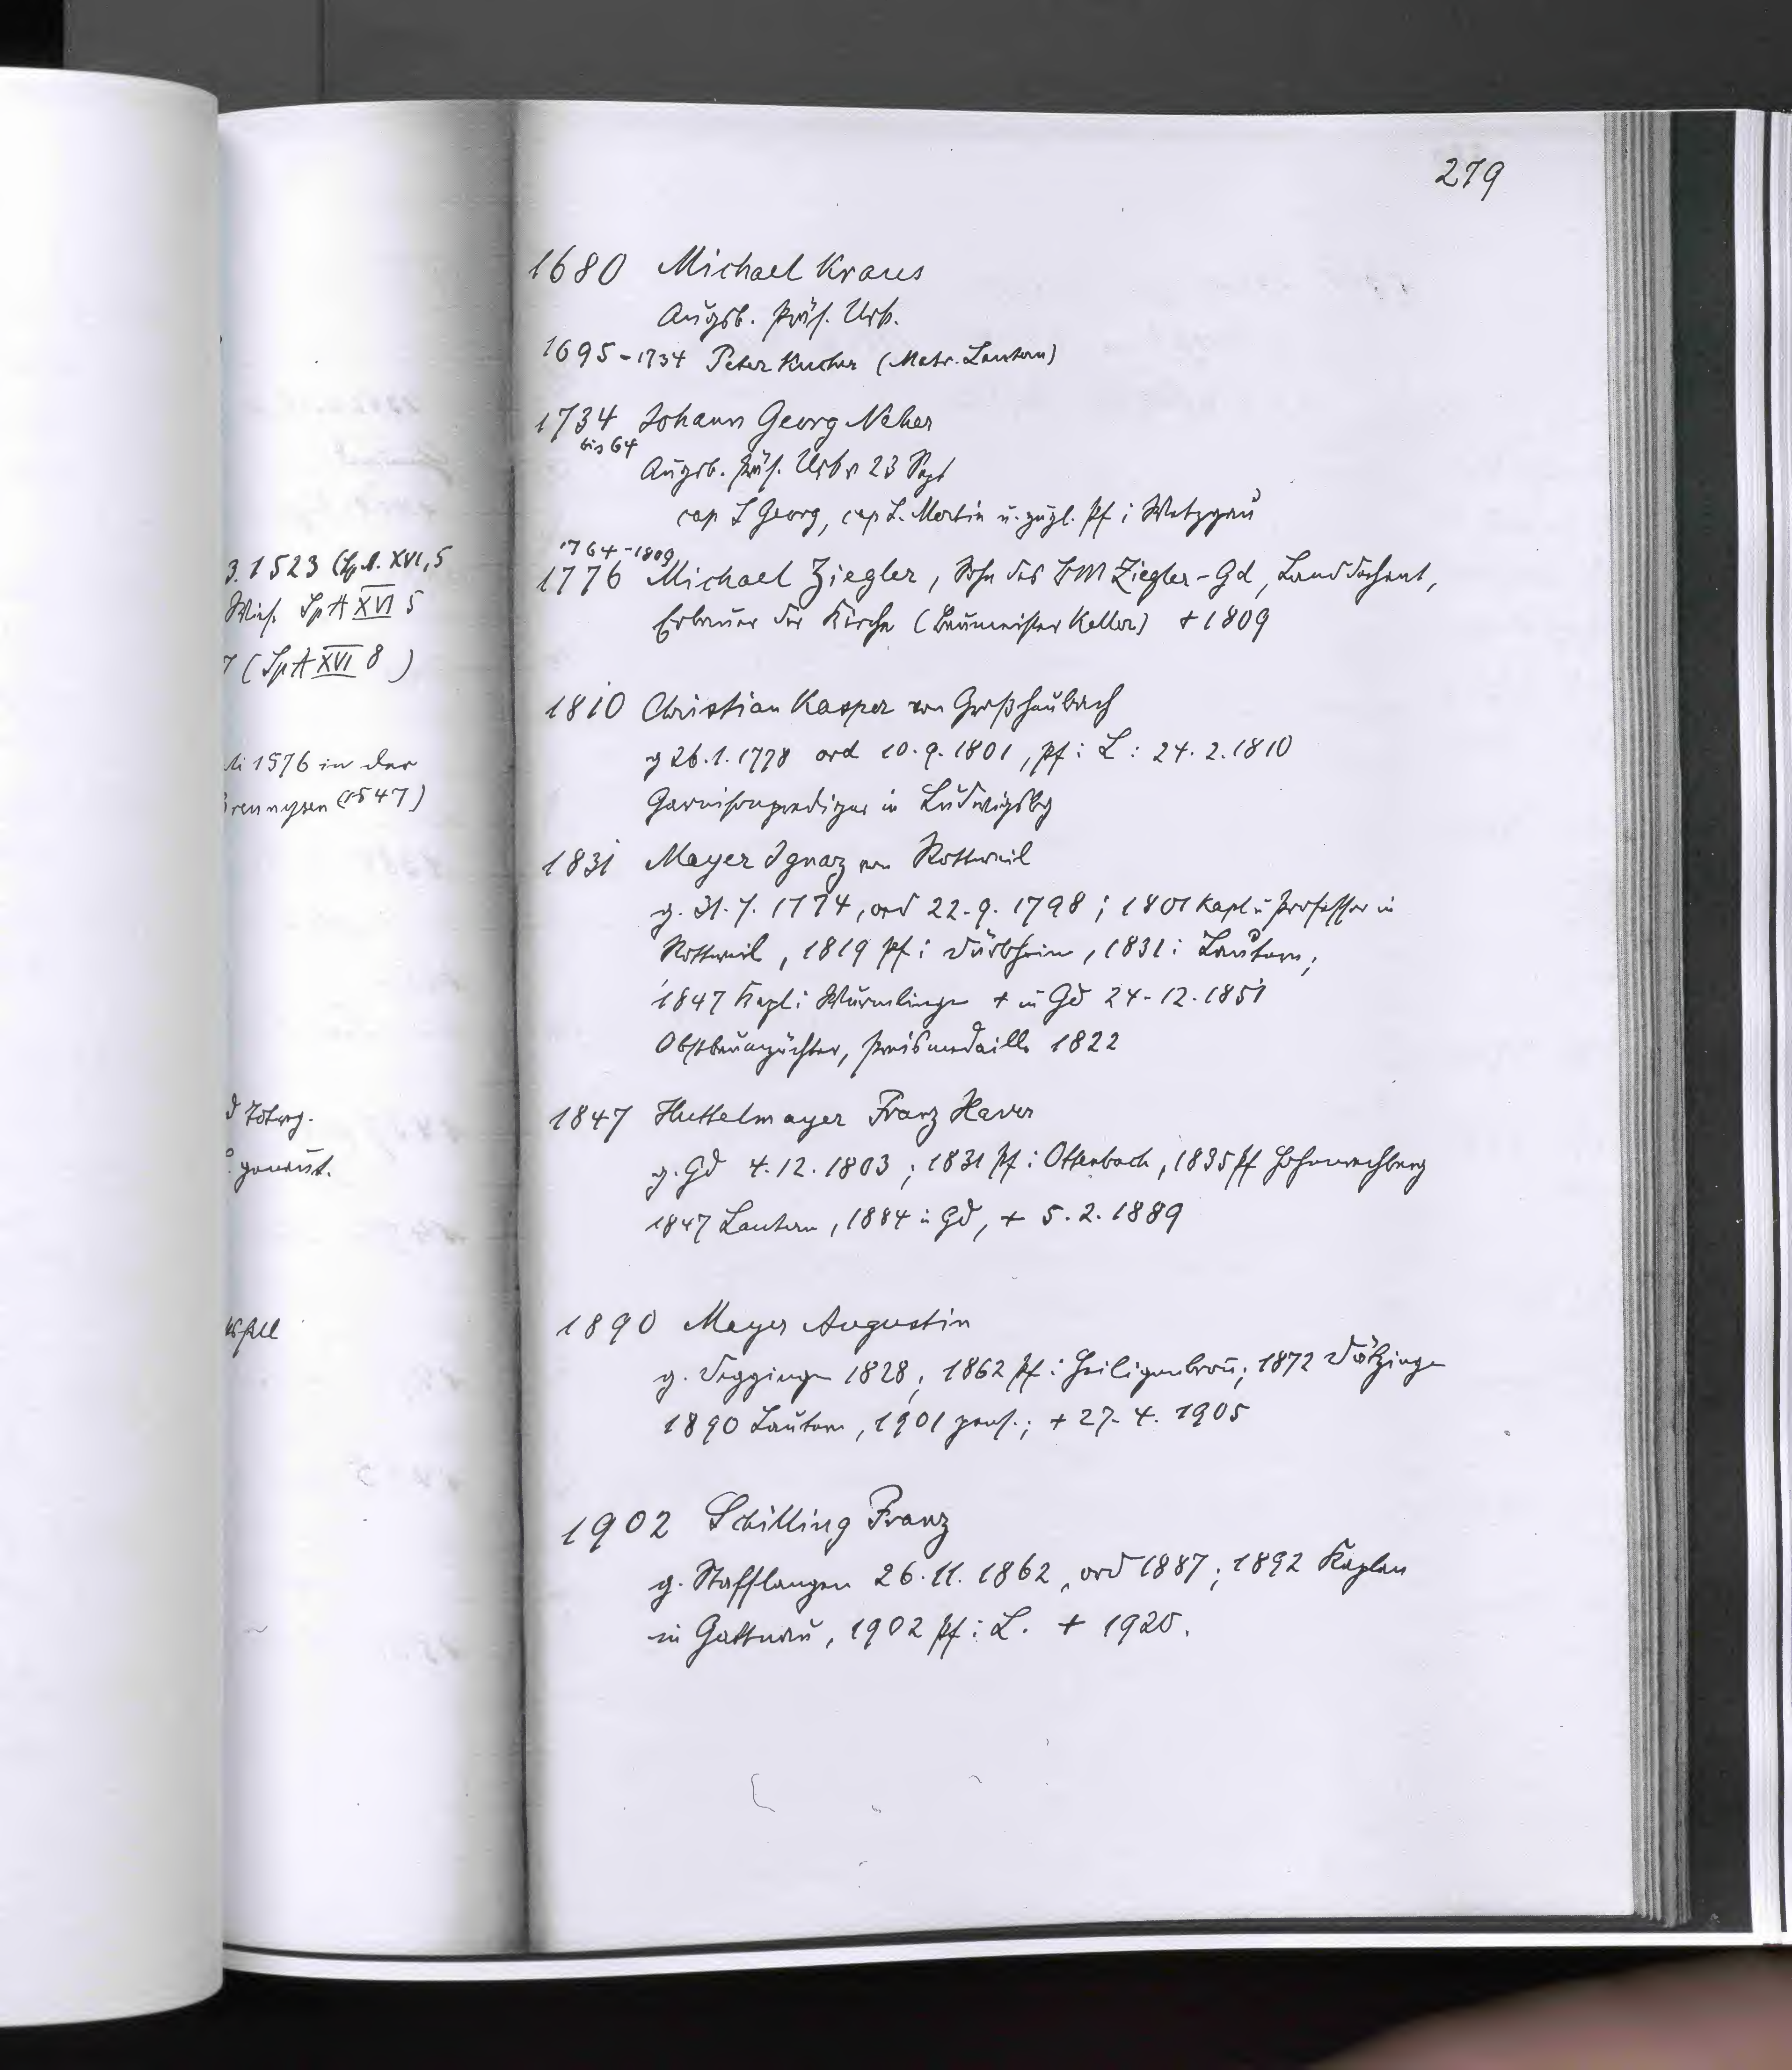 279
1680 Michael Kraus
Augsb. Präs. Urk.
1695-1734 Peter Kucher (Matr. Lautern)
1734 Johann Georg Neher
bis 64
Augsb. Präs. Urk v 23 Sept
cap S Georg, cap S. Martin u. zugl. Pf i Wetzgau
1764-1809
1776 Michael Ziegler, Sohn des BM Ziegler-Gd, Landdechant,
Erbauer der Kirche (Baumeister Keller) +1809
1810 Christian Kasper von Großheubach
g 26.1.1778 ord 10.9.1801, Pf i L: 24.2.1810
Garnisonprediger in Ludwigsbg
1831 Mayer Ignaz von Rottweil
g. 31.7.1774, ord 22.9.1798; 1801 Kapl u Professor in
Rottweil, 1819 Pf i Dürbheim, 1831 i Lautern;
1847 Kapl i Wurmlingen + in Gd 24.12.1851
Obstbaumzüchter, Preismedaille 1822
1847 Huttelmayer Franz Xaver
g. Gd 4.12.1803; 1831 Pf i Ottenbach, 1835 Pf Hohenrechberg
1847 Lautern, 1884 in Gd, + 5.2.1889
1890 Mayer Augustin
g. Deggingen 1828; 1862 Pf i Heiligenbronn; 1872 Dätzingen
1890 Lautern, 1901 pens.; + 27.4.1905
1902 Schilling Franz
g. Stafflangen 26.11.1862, ord 1887; 1892 Kaplan
in Gattnau, 1902 Pf i L. + 1920.
3. 1523 (Sp A. XVI, 5
SpA XVI 5
7 (SpA XVI 8)
li 1576 in der
(1547)